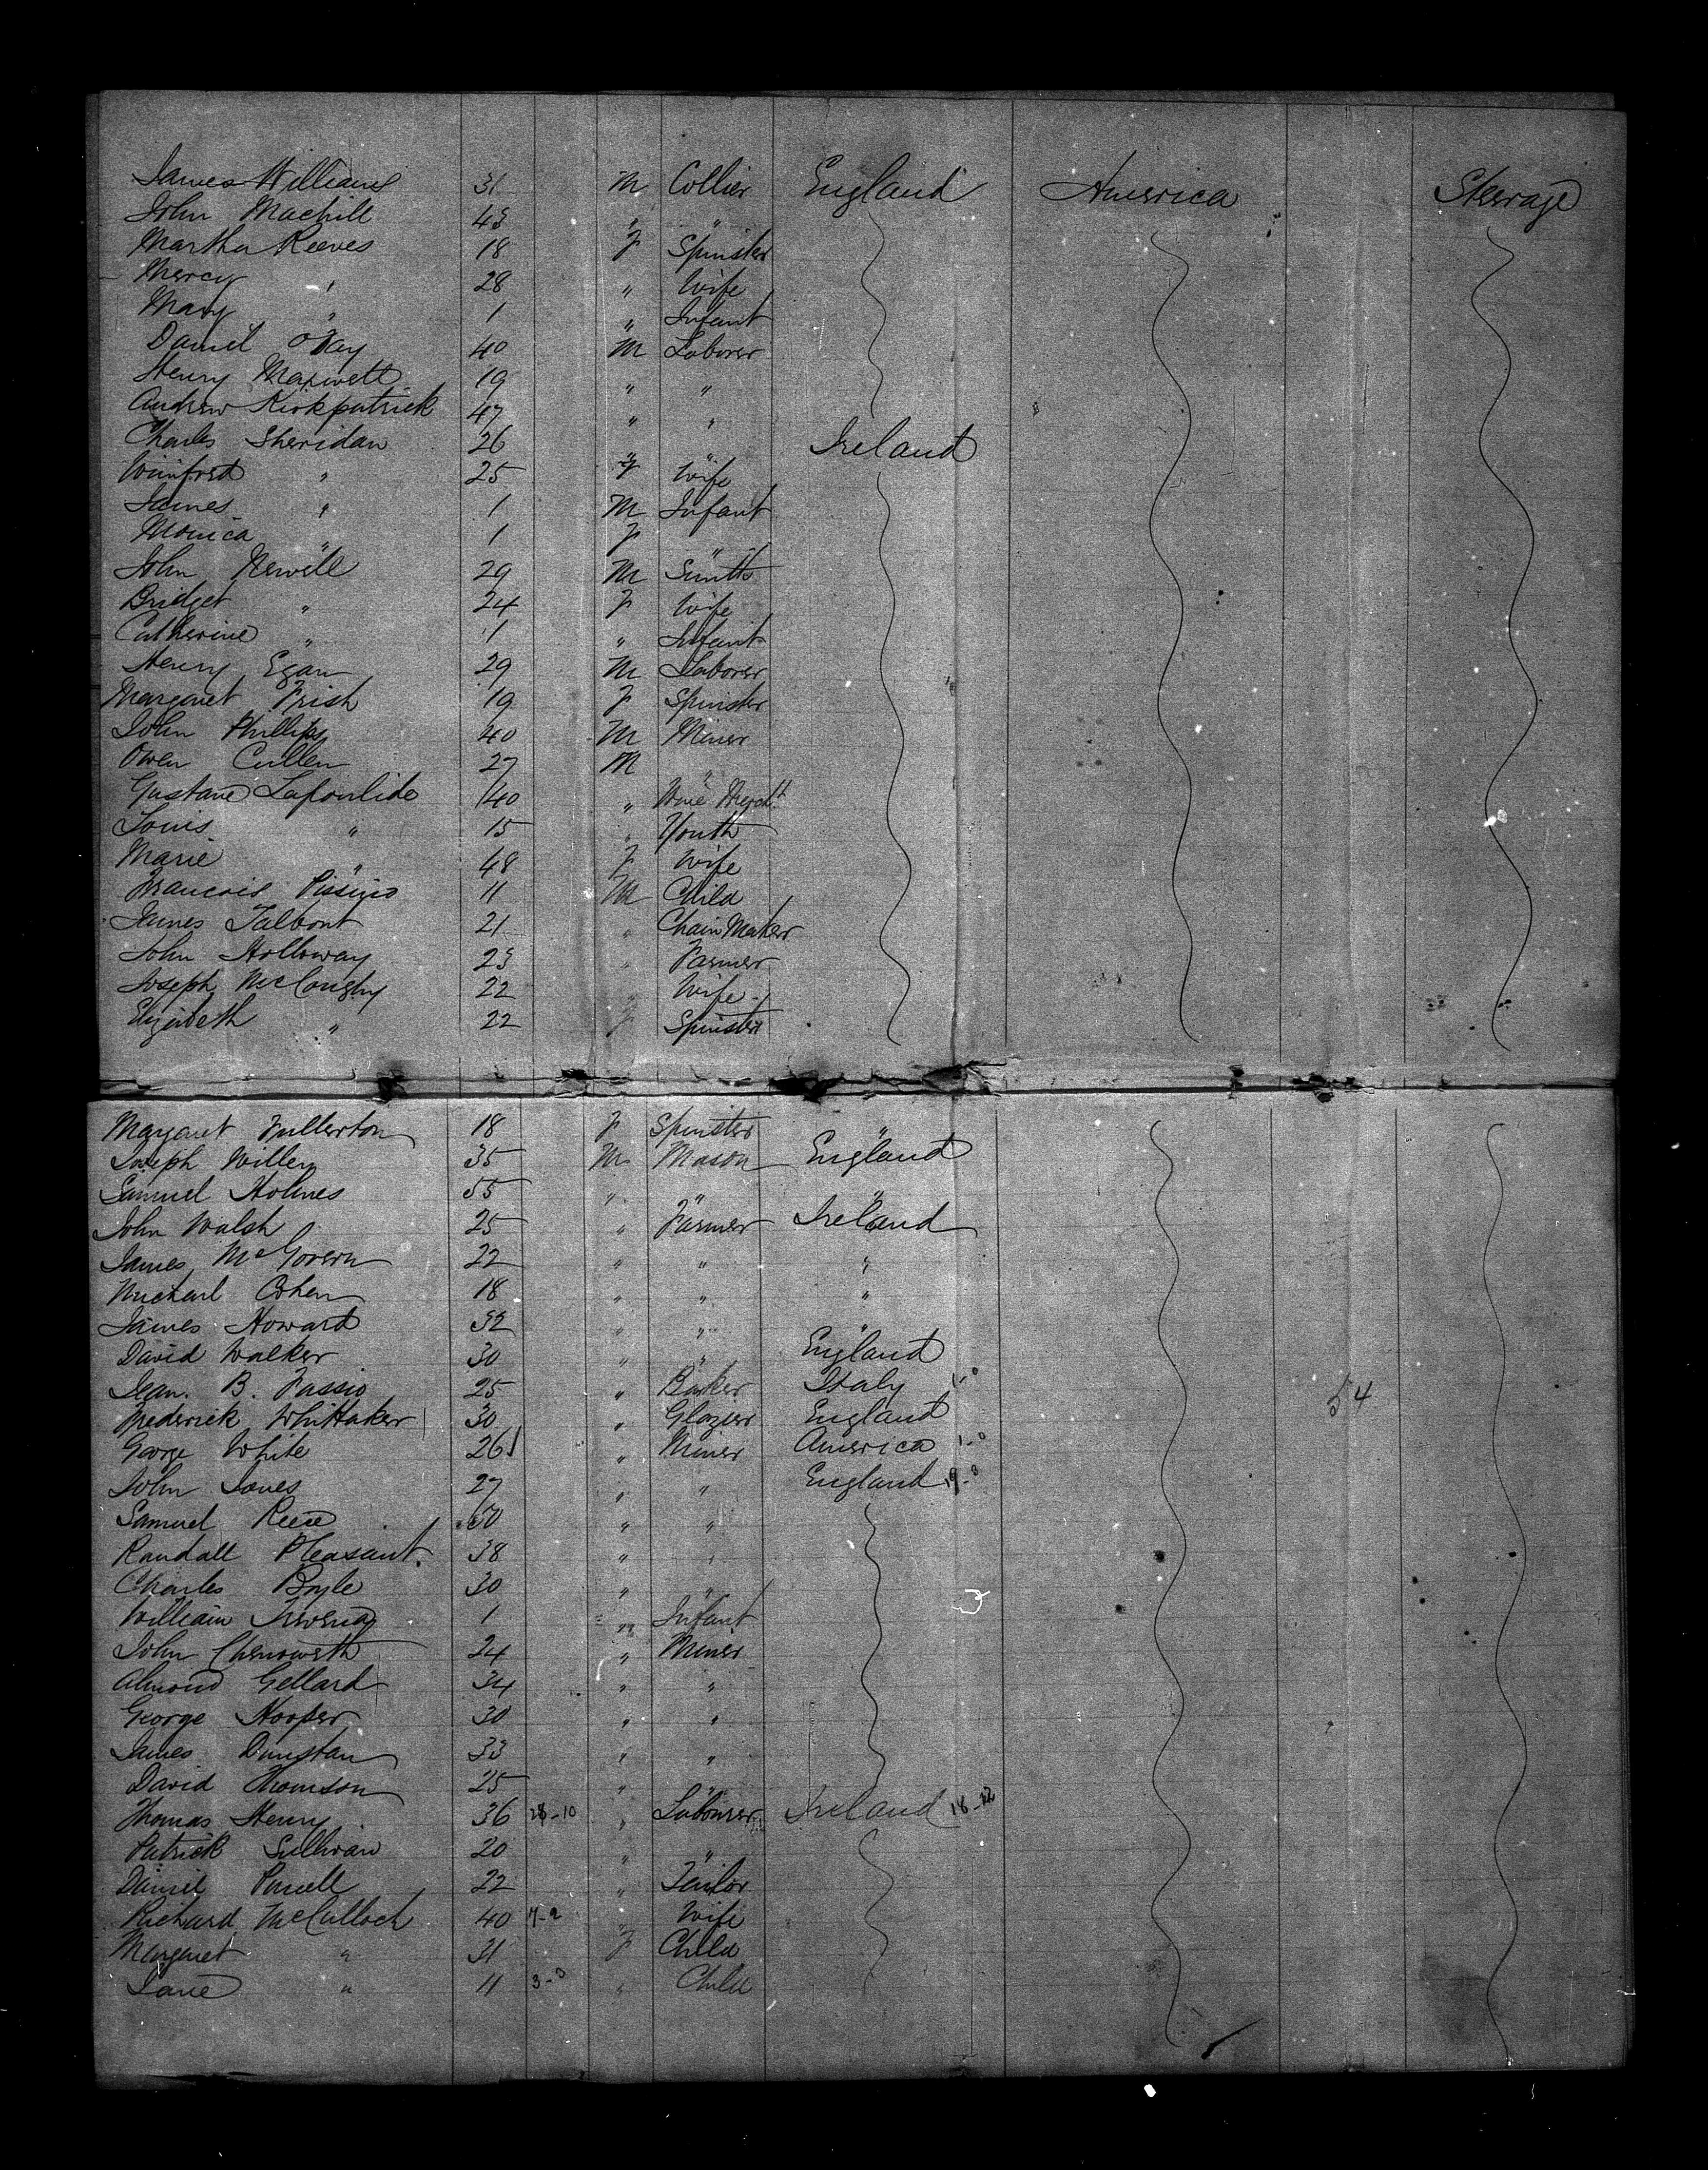 James Williams 31 M Collier England America Steerage
John Machill 43 " "
Martha Reeves 18 F Spinster
Mercy " 28 " Wife
Mary " 1 " Infant
Daniel 40 M Laborer
Henry Maxwell 19 " "
Andrew Kirkpatrick 47 " "
Charles Sheridan 26 " " Ireland
Winifred " 25 F Wife
James " 1 M Infant
Monica " 1 F "
John Newell 29 M Smith
Bridget " 24 F Wife
Catherine " 1 " Infant
Henry Egan 29 M Laborer
Margaret Frish 19 F Spinster
John Phillips 40 M Miner
Owen Cullen 27 M "
Gustave 40 " Wine Mercht
Louis " 15 " Youth
Marie " 48 F Wife
Francois 11 M Child
James Talbont 21 " Chain Maker
John Holloway 23 " Farmer
Joseph 22 " Wife
Elizabeth " 22 F Spinster
Margaret Fullerton 18 F Spinster "
Joseph Willey 35 M Mason England
Samuel Holmes 55 " " "
John Walsh 25 " Farmer Ireland
James McGovern 22 " " "
Michael Cohen 18 " " "
James Howard 32 " " "
David Walker 30 " " England
Jean. B. Fassio 25 " Baker Italy 1-0 54
Frederick Whittaker 30 " Glazier England
George White 26 " Miner America 1-0
John Jones 27 " " England
Samuel Reese " "
Randall Pleasant. 38 " "
Charles Boyle 30 " "
William 1 " Infant
John Chenoweth 24 " Miner
Almond Gellard 34 " "
George Hooper 30 " "
James Dunstan 33 " "
David Thomson 25 " "
Thomas Henry 36 28-10 " Labourer Ireland 18-12
Patrick Sullivan 20 " "
Daniel Purcell 22 " Tailor
Richard McCulloch 40 " Wife
Margaret " 31 F Child
Jane " 11 3-3 " Child